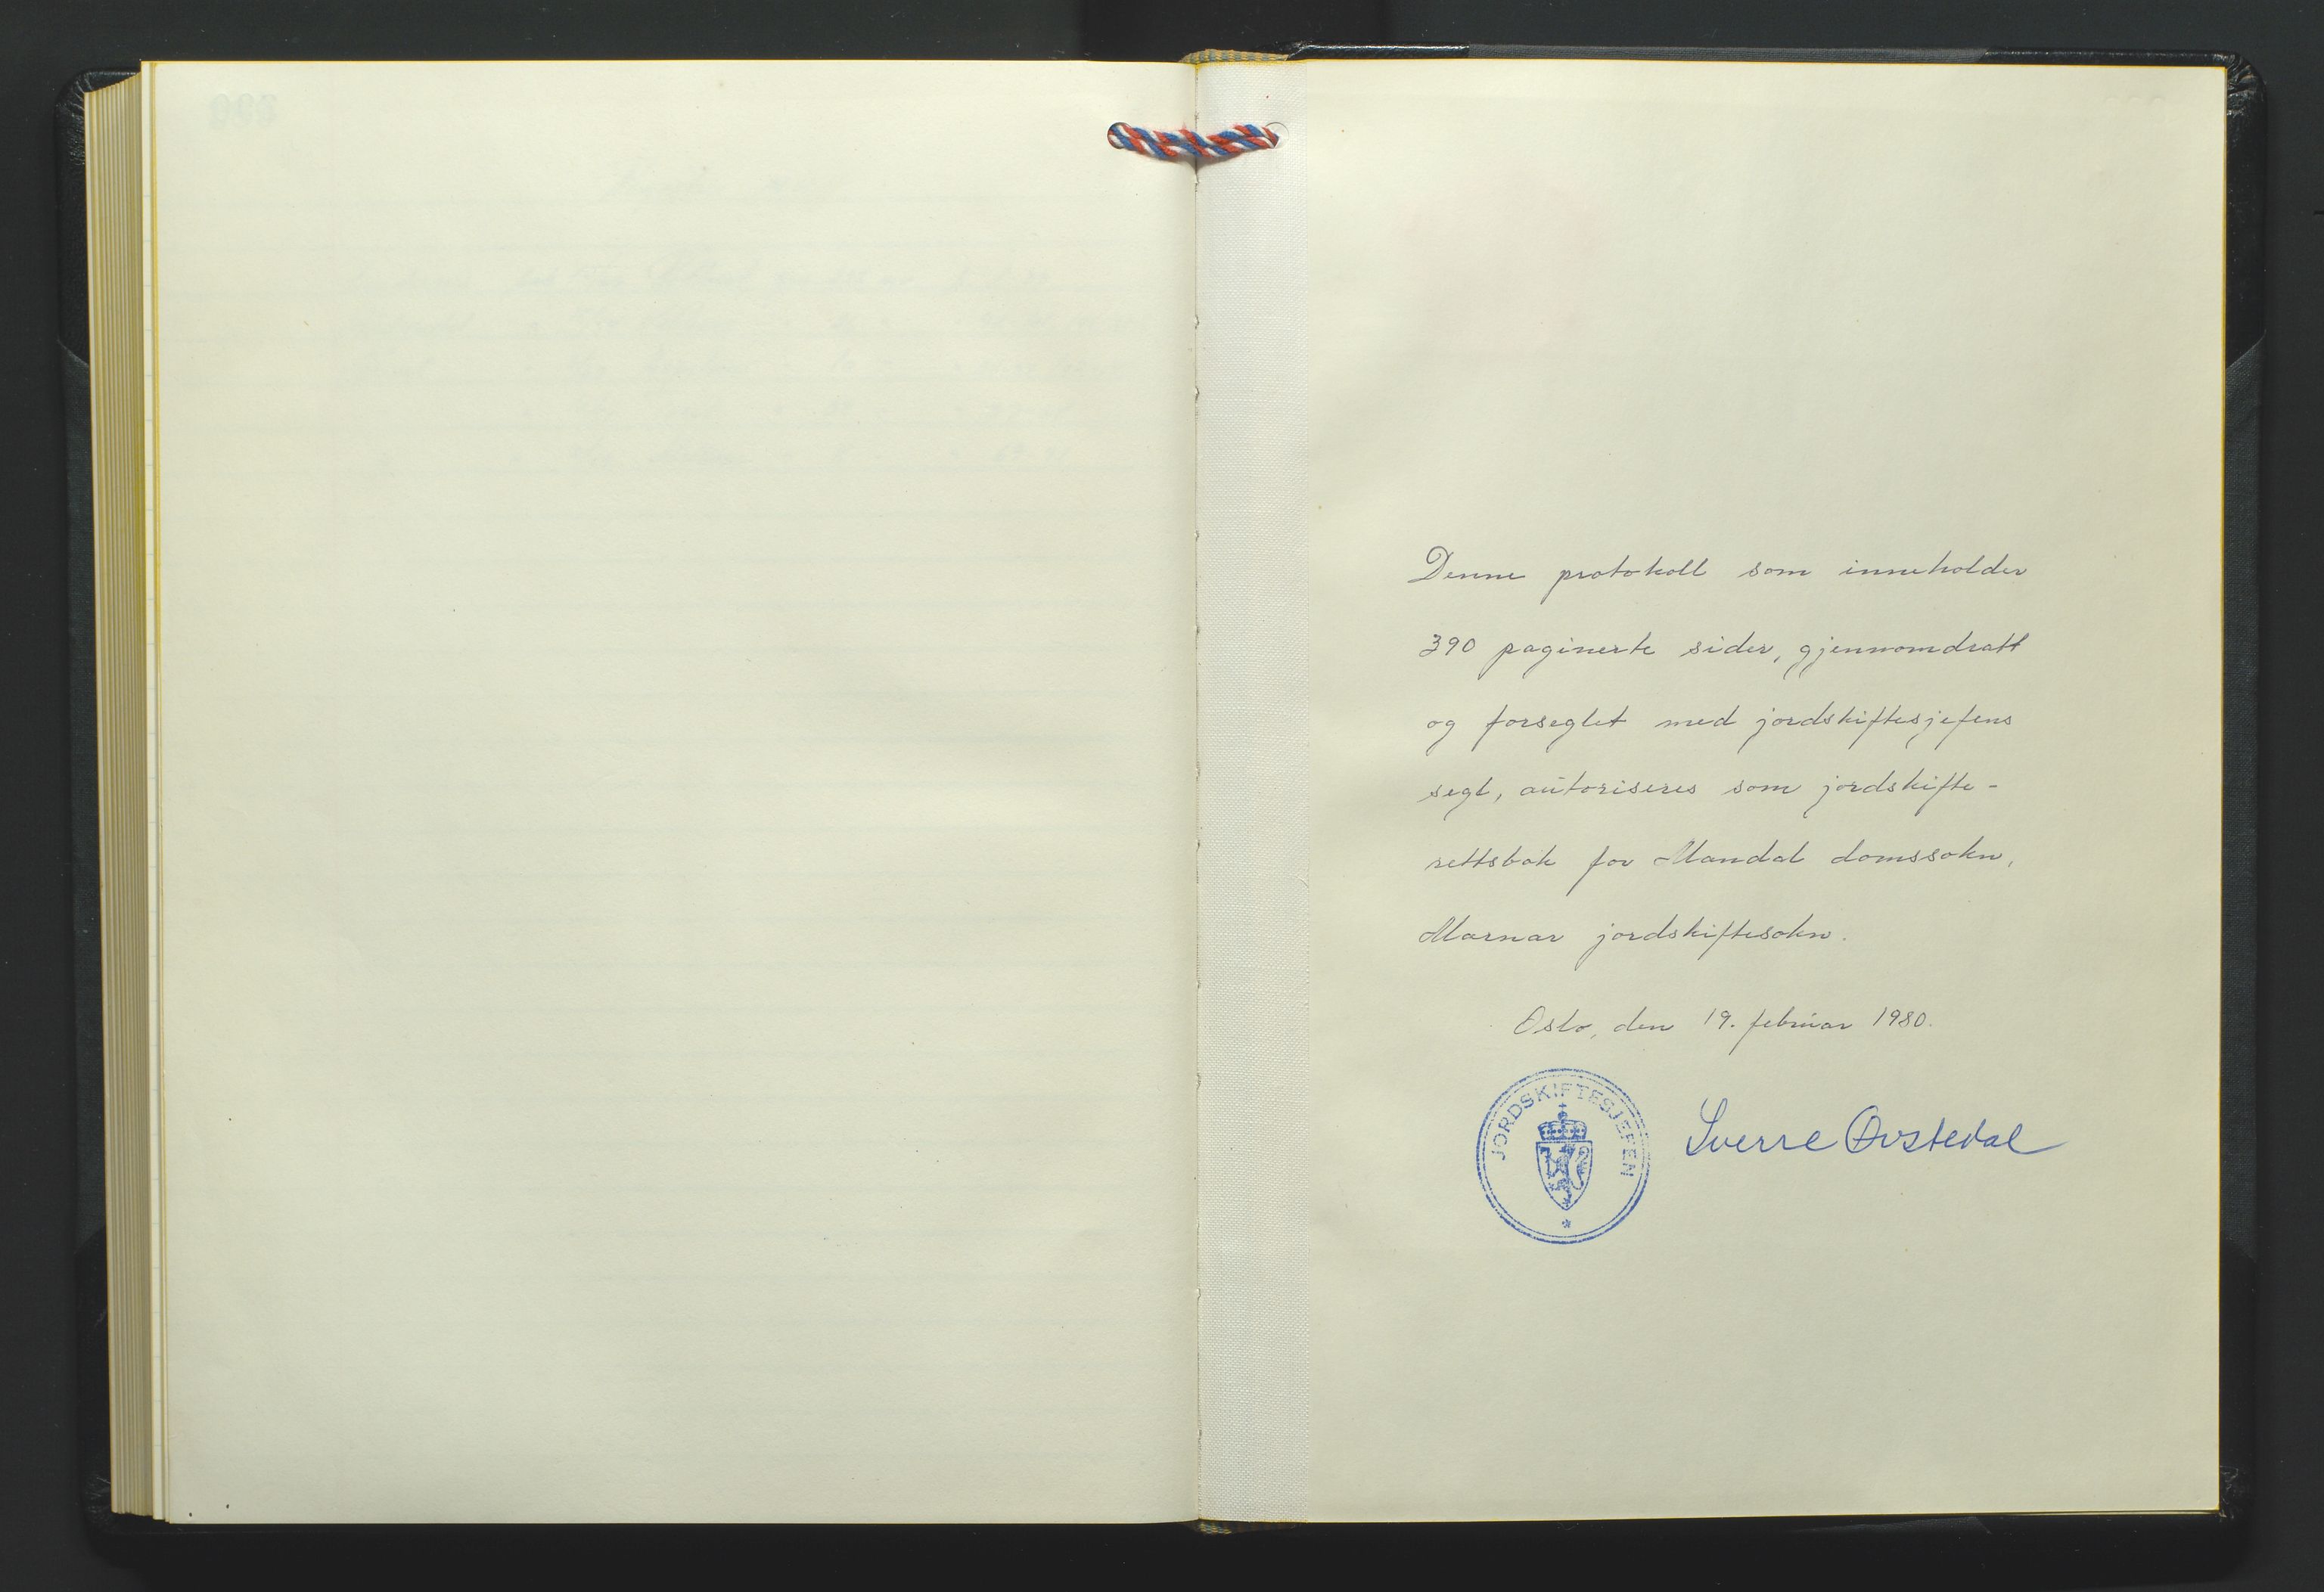 Denne protokoll som inneholder
390 paginerte sider, gjennomdratt
og forseglet med jordskiftesjefens
segl, autoriseres som jordskifte-
rettsbok for Mandal domssokn,
Marnar jordskiftesokn.
Oslo, den 19. februar 1980.
JORDSKIFTESJEFEN
Sverre Øvstedal